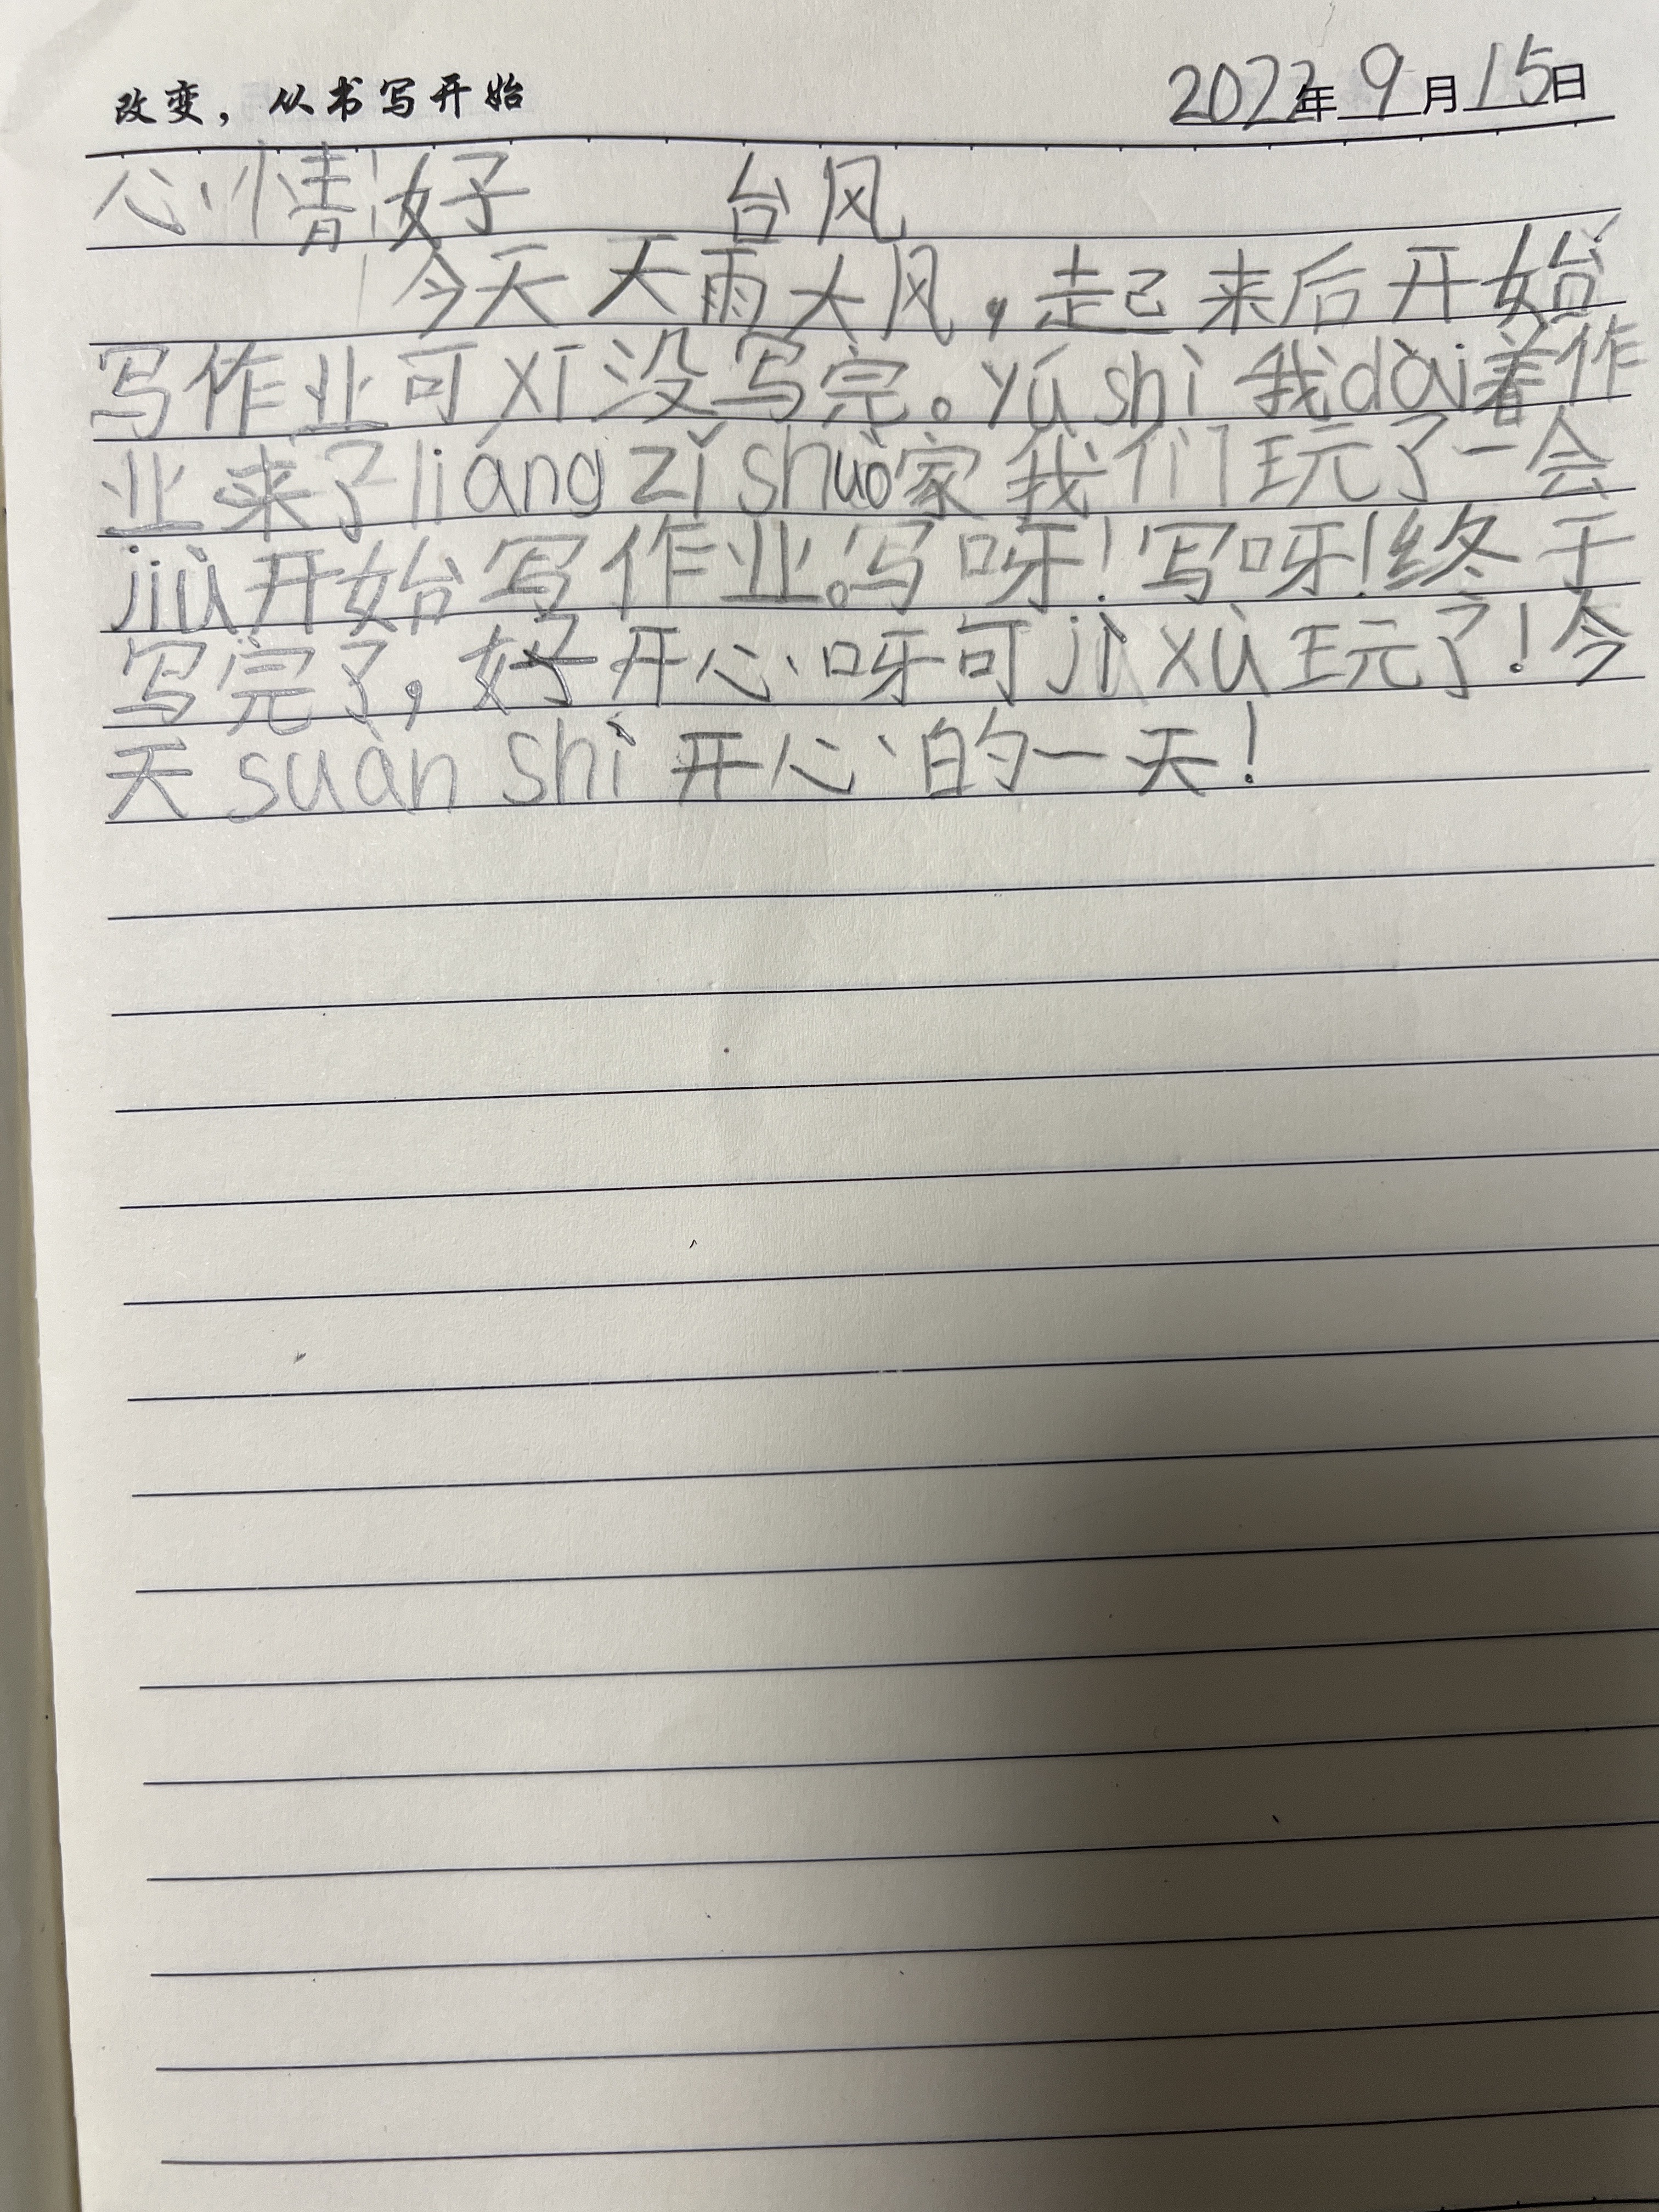 改变，从书写开始 2022年9月15日
心情好 台风
今天大雨大风，起来后开始
写作业可xī没写完。yú shì 我dài着作
业来了liáng zǐ shuò家我们玩了一会
jiù开始写作业。写呀！写呀！终于
写完了，好开心呀可jì xù玩了！今
天 suàn shì 开心的一天！